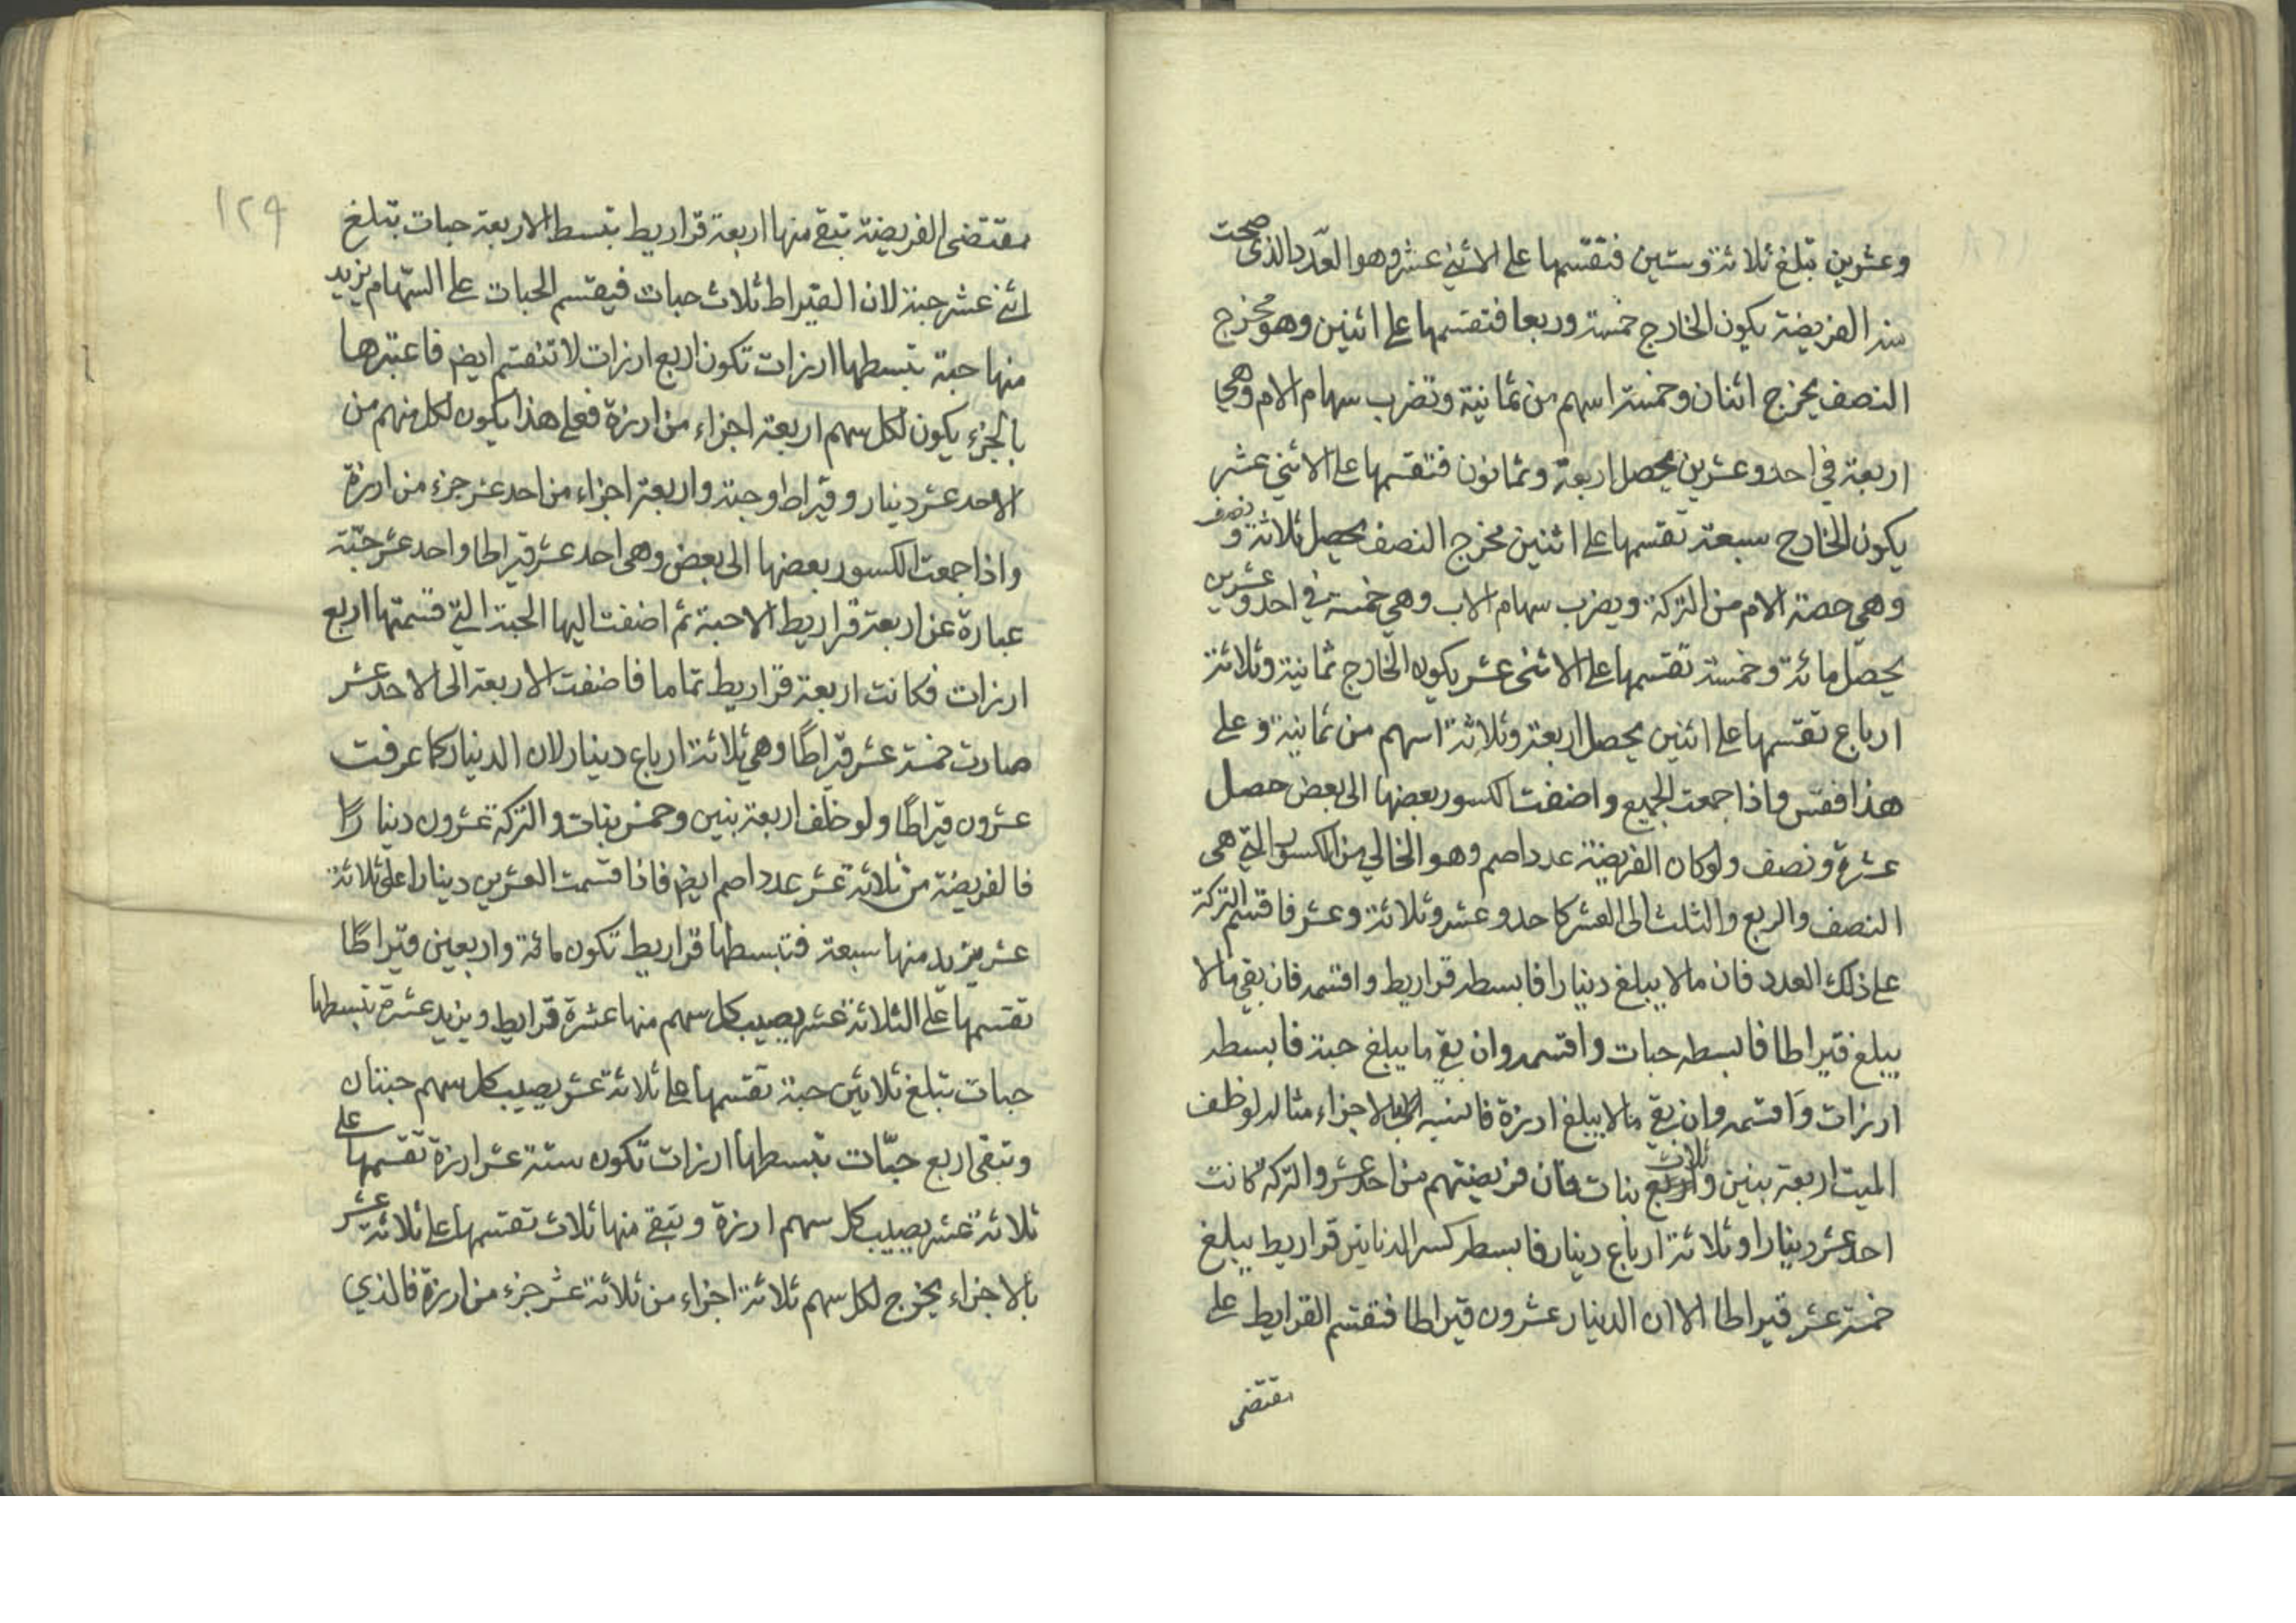 وعشرين تبلغ ثلاثة وستين فتقسمها على الاثني عشر وهو العدد الذي صحت
منه الفريضة يكون الخارج خمسة وربعا فتقسمها على اثنين وهو مخرج
النصف يخرج اثنان وخمسة اسهم من ثمانية وتضرب سهام الام وهي
اربعة في احد وعشرين يحصل اربعة وثمانون فتقسمها على الاثني عشر
يكون الخارج سبعة تقسمها على اثنين مخرج النصف يحصل ثلاثة ونصف
وهي حصة الام من التركة ويضرب سهام الاب وهي خمسة في احد وعشرين
يحصل مائة وخمسة تقسمها على الاثنى عشر يكون الخارج ثمانية وثلاثة
ارباع تقسمها على اثنين يحصل اربعة وثلاثة اسهم من ثمانية وعلى
هذا فقس واذا جمعت الجميع واضفت الكسور بعضها الى بعض حصل
عشرة ونصف ولو كان الفريضة عددا صم وهو الخالي من الكسور التي هي
النصف والربع والثلث الى العشر كاحد وعشر وثلاثة وعشر فاقسم التركة
على ذلك العدد فان مالا يبلغ دينارا فابسطه قراريط واقسمه فان بقي مالا
يبلغ قيراطا فابسطه حبات واقسمه وان بقي ما يبلغ حبة فابسطه
ارزات واقسمه وان بقي مالا يبلغ ارزة فانسبه بالاجزاء مثاله لو خلف
الميت اربعة بنين وثلاث بنات فان فريضتهم من احد عشر والتركة كانت
احد عشر دينارا وثلاثة ارباع دينار فابسط كسر الدنانير قراريط يبلغ
خمسة عشر قيراطا الا ان الدينار عشرون قيراطا فتقسم القرايط على
مقتضى
١٢٩
مقتضى الفريضة تبقى منها اربعة قراريط تبسط الاربعة حبات تبلغ
اثني عشر حبة لان القيراط ثلاث حبات فيقسم الحبات على السهام يزيد
منها حبة تبسطها ارزات تكون اربع ارزات لا تنقسم ايض فاعتبرها
بالجزء يكون لكل سهم اربعة اجزاء من ارزة فعلى هذا يكون لكل منهم من
الاحد عشر دينار وقيراط وحبة واربعة اجزاء من احد عشر جزء من ارزة
واذا جمعت الكسور بعضها الى بعض وهي احد عشر قيراطا واحد عشر حبة
عبارة عن اربعة قراريط الا حبة ثم اضفت اليها الحبة التي قسمتها اربع
ارزات فكانت اربعة قراريط تماما فاضفت الاربعة الى الاحد عشر
صارت خمسة عشر قيراطا وهي ثلاثة ارباع دينار لان الدينار كما عرفت
عشرون قيراطا ولو خلف اربعة بنين وخمس بنات والتركة عشرون دينارا
فالفريضة من ثلاثة عشر عددا صم ايض فاذا قسمت العشرين دينارا على ثلاثة
عشر يزيد منها سبعة فتبسطها قراريط تكون مائة واربعين قيراطا
تقسمها على الثلاثة عشر يصيب كل سهم منها عشرة قرايط ويزيد عشرة تبسطها
حبات تبلغ ثلاثين حبة تقسمها على ثلاثة عشر يصيب كل سهم حبتان
وتبقى اربع حبات تبسطها ارزات تكون ستة عشر ارزة تقسمها على
ثلاثة عشر يصيب كل سهم ارزة وتبقى منها ثلاث تقسمها على ثلاثة عشر
بالاجزاء يخرج لكل سهم ثلاثة اجزاء من ثلاثة عشر جزء من ارزة فالذي